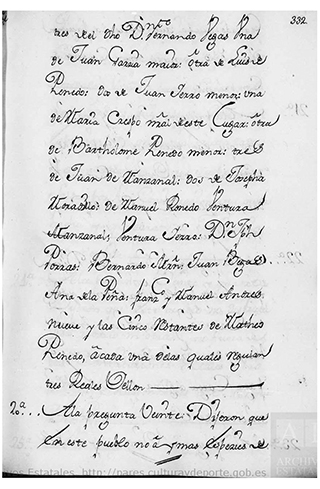 332.
tres del dho Dn. Fernando Vegas Una
de Juan Garcia maior: otra de Luis de
Renedo: dos de Juan Ferro menor: una
de Maria Crespo mrãl deste Lugar: otra
de Bartholome Renedo menor: tres
de Juan de Manzanal: dos de Josepha
de Manuel Renedo Ventura
Manzanal, Ventura Ferro: Dn. Jph
Porras: Bernardo Mrñ: Juan Bega
Ana de la Peña: franco y Manuel Andres
nueve y las Cinco Restantes de Matheo
Renedo, a cada una delas quales regulan
tres Reales Vellon
20.a... Ala pregunta Veinte Dijeron que
en este pueblo no ai mas Espezies de
Estatales. http://pares.culturaydeporte.gob.es